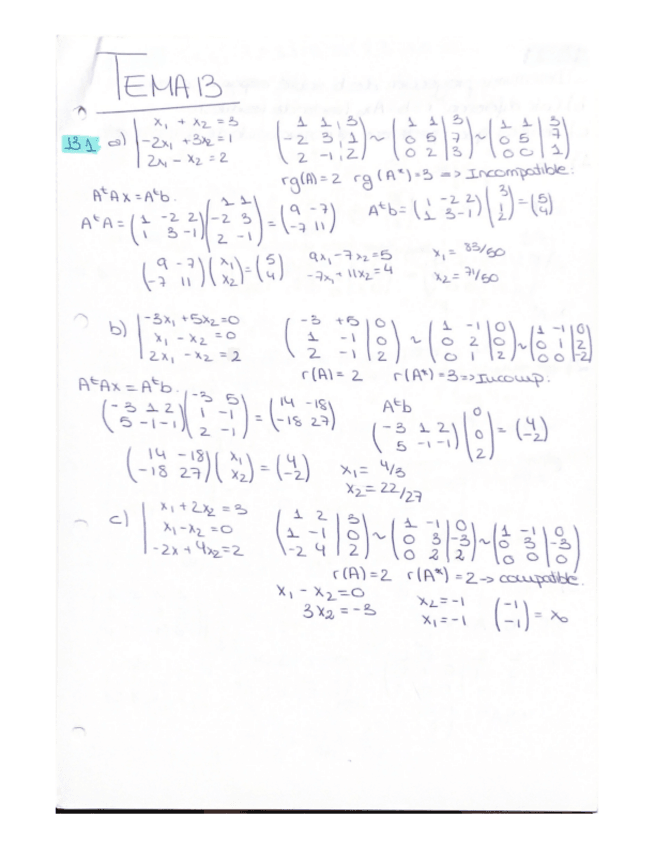 TEMA 13
13.1 a) | x₁ + x₂ = 3
-2x₁ + 3x₂ = 1
2x₁ - x₂ = 2
(1 1 | 3; -2 3 | 1; 2 -1 | 2) ~ (1 1 | 3; 0 5 | 7; 0 2 | 3) ~ (1 1 | 3; 0 5 | 7; 0 0 | 1)
rg(A) = 2 rg(A*) = 3 => Incompatible.
AᵗAx = Aᵗb.
AᵗA = (1 -2 2; 1 3 -1)(1 1; -2 3; 2 -1) = (9 -7; -7 11) Aᵗb = (1 -2 2; 1 3 -1)(3; 1; 2) = (5; 4)
(9 -7; -7 11)(x₁; x₂) = (5; 4) 9x₁ - 7x₂ = 5 x₁ = 83/50
-7x₁ + 11x₂ = 4 x₂ = 71/50
b) | -3x₁ + 5x₂ = 0
x₁ - x₂ = 0
2x₁ - x₂ = 2
(-3 +5 | 0; 1 -1 | 0; 2 -1 | 2) ~ (1 -1 | 0; 0 2 | 0; 0 1 | 2) ~ (1 -1 | 0; 0 1 | 2; 0 0 | -2)
r(A) = 2 r(A*) = 3 => Incomp.
AᵗAx = Aᵗb.
(-3 1 2; 5 -1 -1)(-3 5; 1 -1; 2 -1) = (14 -18; -18 27) Aᵗb
(-3 1 2; 5 -1 -1)(0; 0; 2) = (4; -2)
(14 -18; -18 27)(x₁; x₂) = (4; -2) x₁ = 4/3
x₂ = 22/27
c) | x₁ + 2x₂ = 3
x₁ - x₂ = 0
-2x + 4x₂ = 2
(1 2 | 3; 1 -1 | 0; -2 4 | 2) ~ (1 -1 | 0; 0 3 | -3; 0 2 | 2) ~ (1 -1 | 0; 0 3 | -3; 0 0 | 0)
r(A) = 2 r(A*) = 2 -> compatible.
x₁ - x₂ = 0 x₂ = -1 (-1; -1) = x₀
3x₂ = -3 x₁ = -1